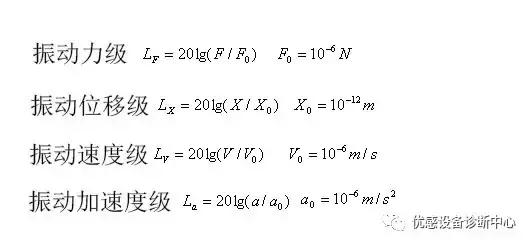 振动力级 L_F = 20lg(F / F_0) F_0 = 10^{-6} N
振动位移级 L_X = 20lg(X / X_0) X_0 = 10^{-12} m
振动速度级 L_V = 20lg(V / V_0) V_0 = 10^{-6} m / s
振动加速度级 L_a = 20lg(a / a_0) a_0 = 10^{-6} m / s^2
优感设备诊断中心